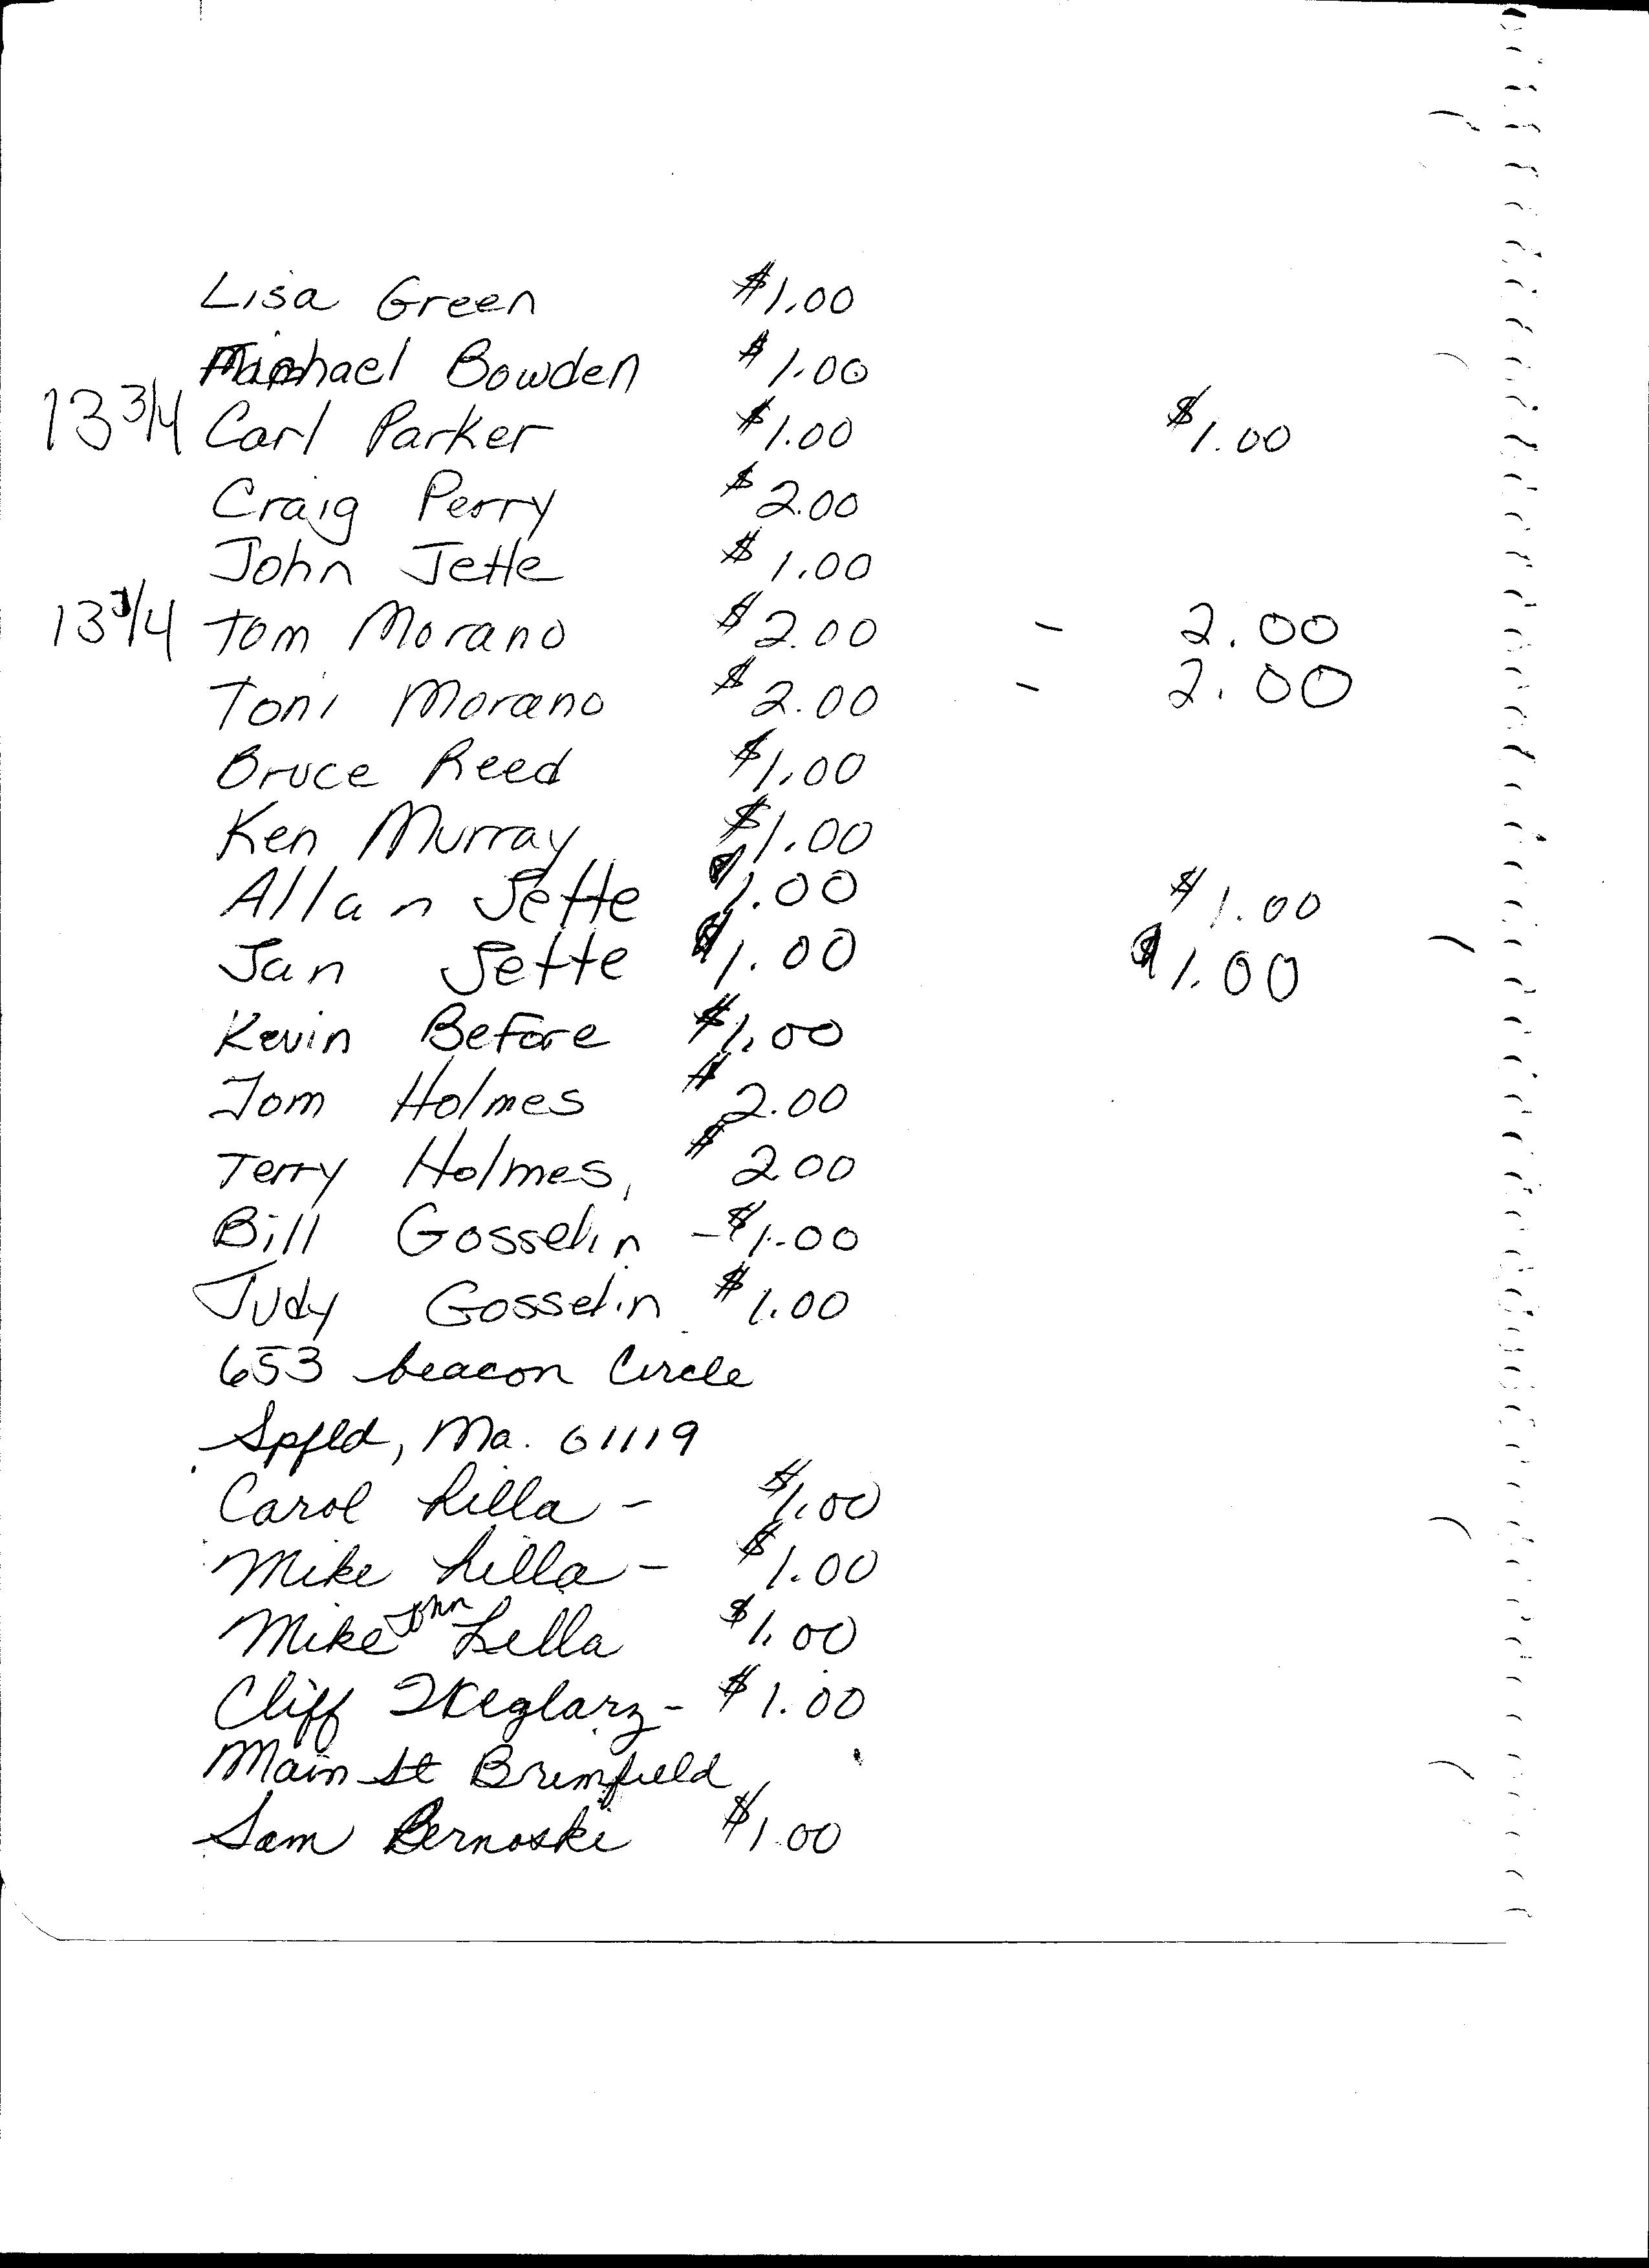 Lisa Green $1.00
Michael Bowden $1.00
13 3/4 Carl Parker $1.00 $1.00
Craig Perry $2.00
John Jette $1.00
13 3/4 Tom Morano $2.00 - 2.00
Toni Morano $2.00 - 2.00
Bruce Reed $1.00
Ken Murray $1.00
Allan Jette $1.00 $1.00
Jan Jette $1.00 $1.00
Kevin Before $1.00
Tom Holmes $2.00
Terry Holmes, $200
Bill Gosselin - $1.00
Judy Gosselin $1.00
653 beacon Circle
Spfld, Ma. 01119
Carol Lilla - $1.00
Mike Lilla - $1.00
Mike John Lella $1.00
Cliff - $1.00
Main St Brimfield
Sam Bernoski $1.00